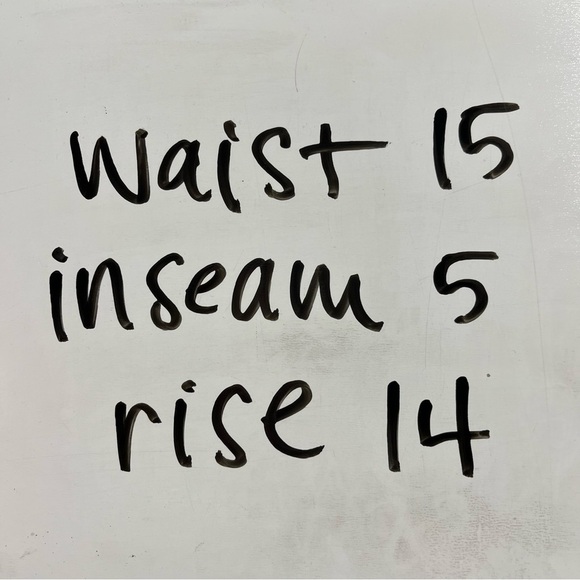 waist 15
inseam 5
rise 14